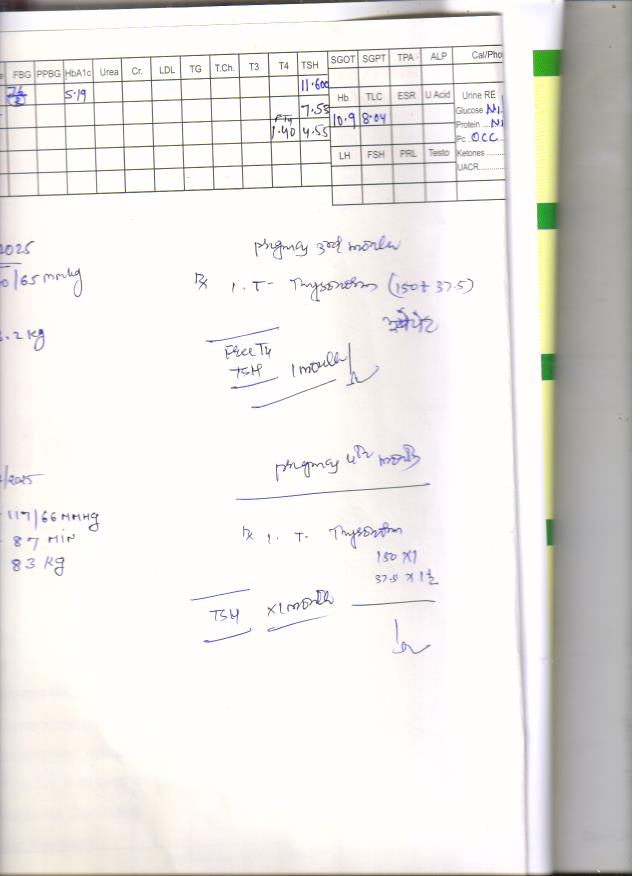 FBG PPBG HbA1c Urea Cr. LDL TG T.Ch. T3 T4 TSH SGOT SGPT TPA ALP Cal/Pho
5.19 11.600
Hb TLC ESR U Acid Urine RE
7.55 Glucose Ni
FT4 Protein Ni
1.40 4.55 10.9 8.04 Pc OCC
LH FSH PRL Testo Ketones
UACR
2025
0/65 mmhg
.2 kg
3rd month
Rx 1. T- (150+37.5)
Free T4
TSH 1 month
/2025
117/66 MMHg
87 MIN
83 Kg
4th month
Rx 1. T-
150 x 1
37.5 x 1½
TSH x 1 month